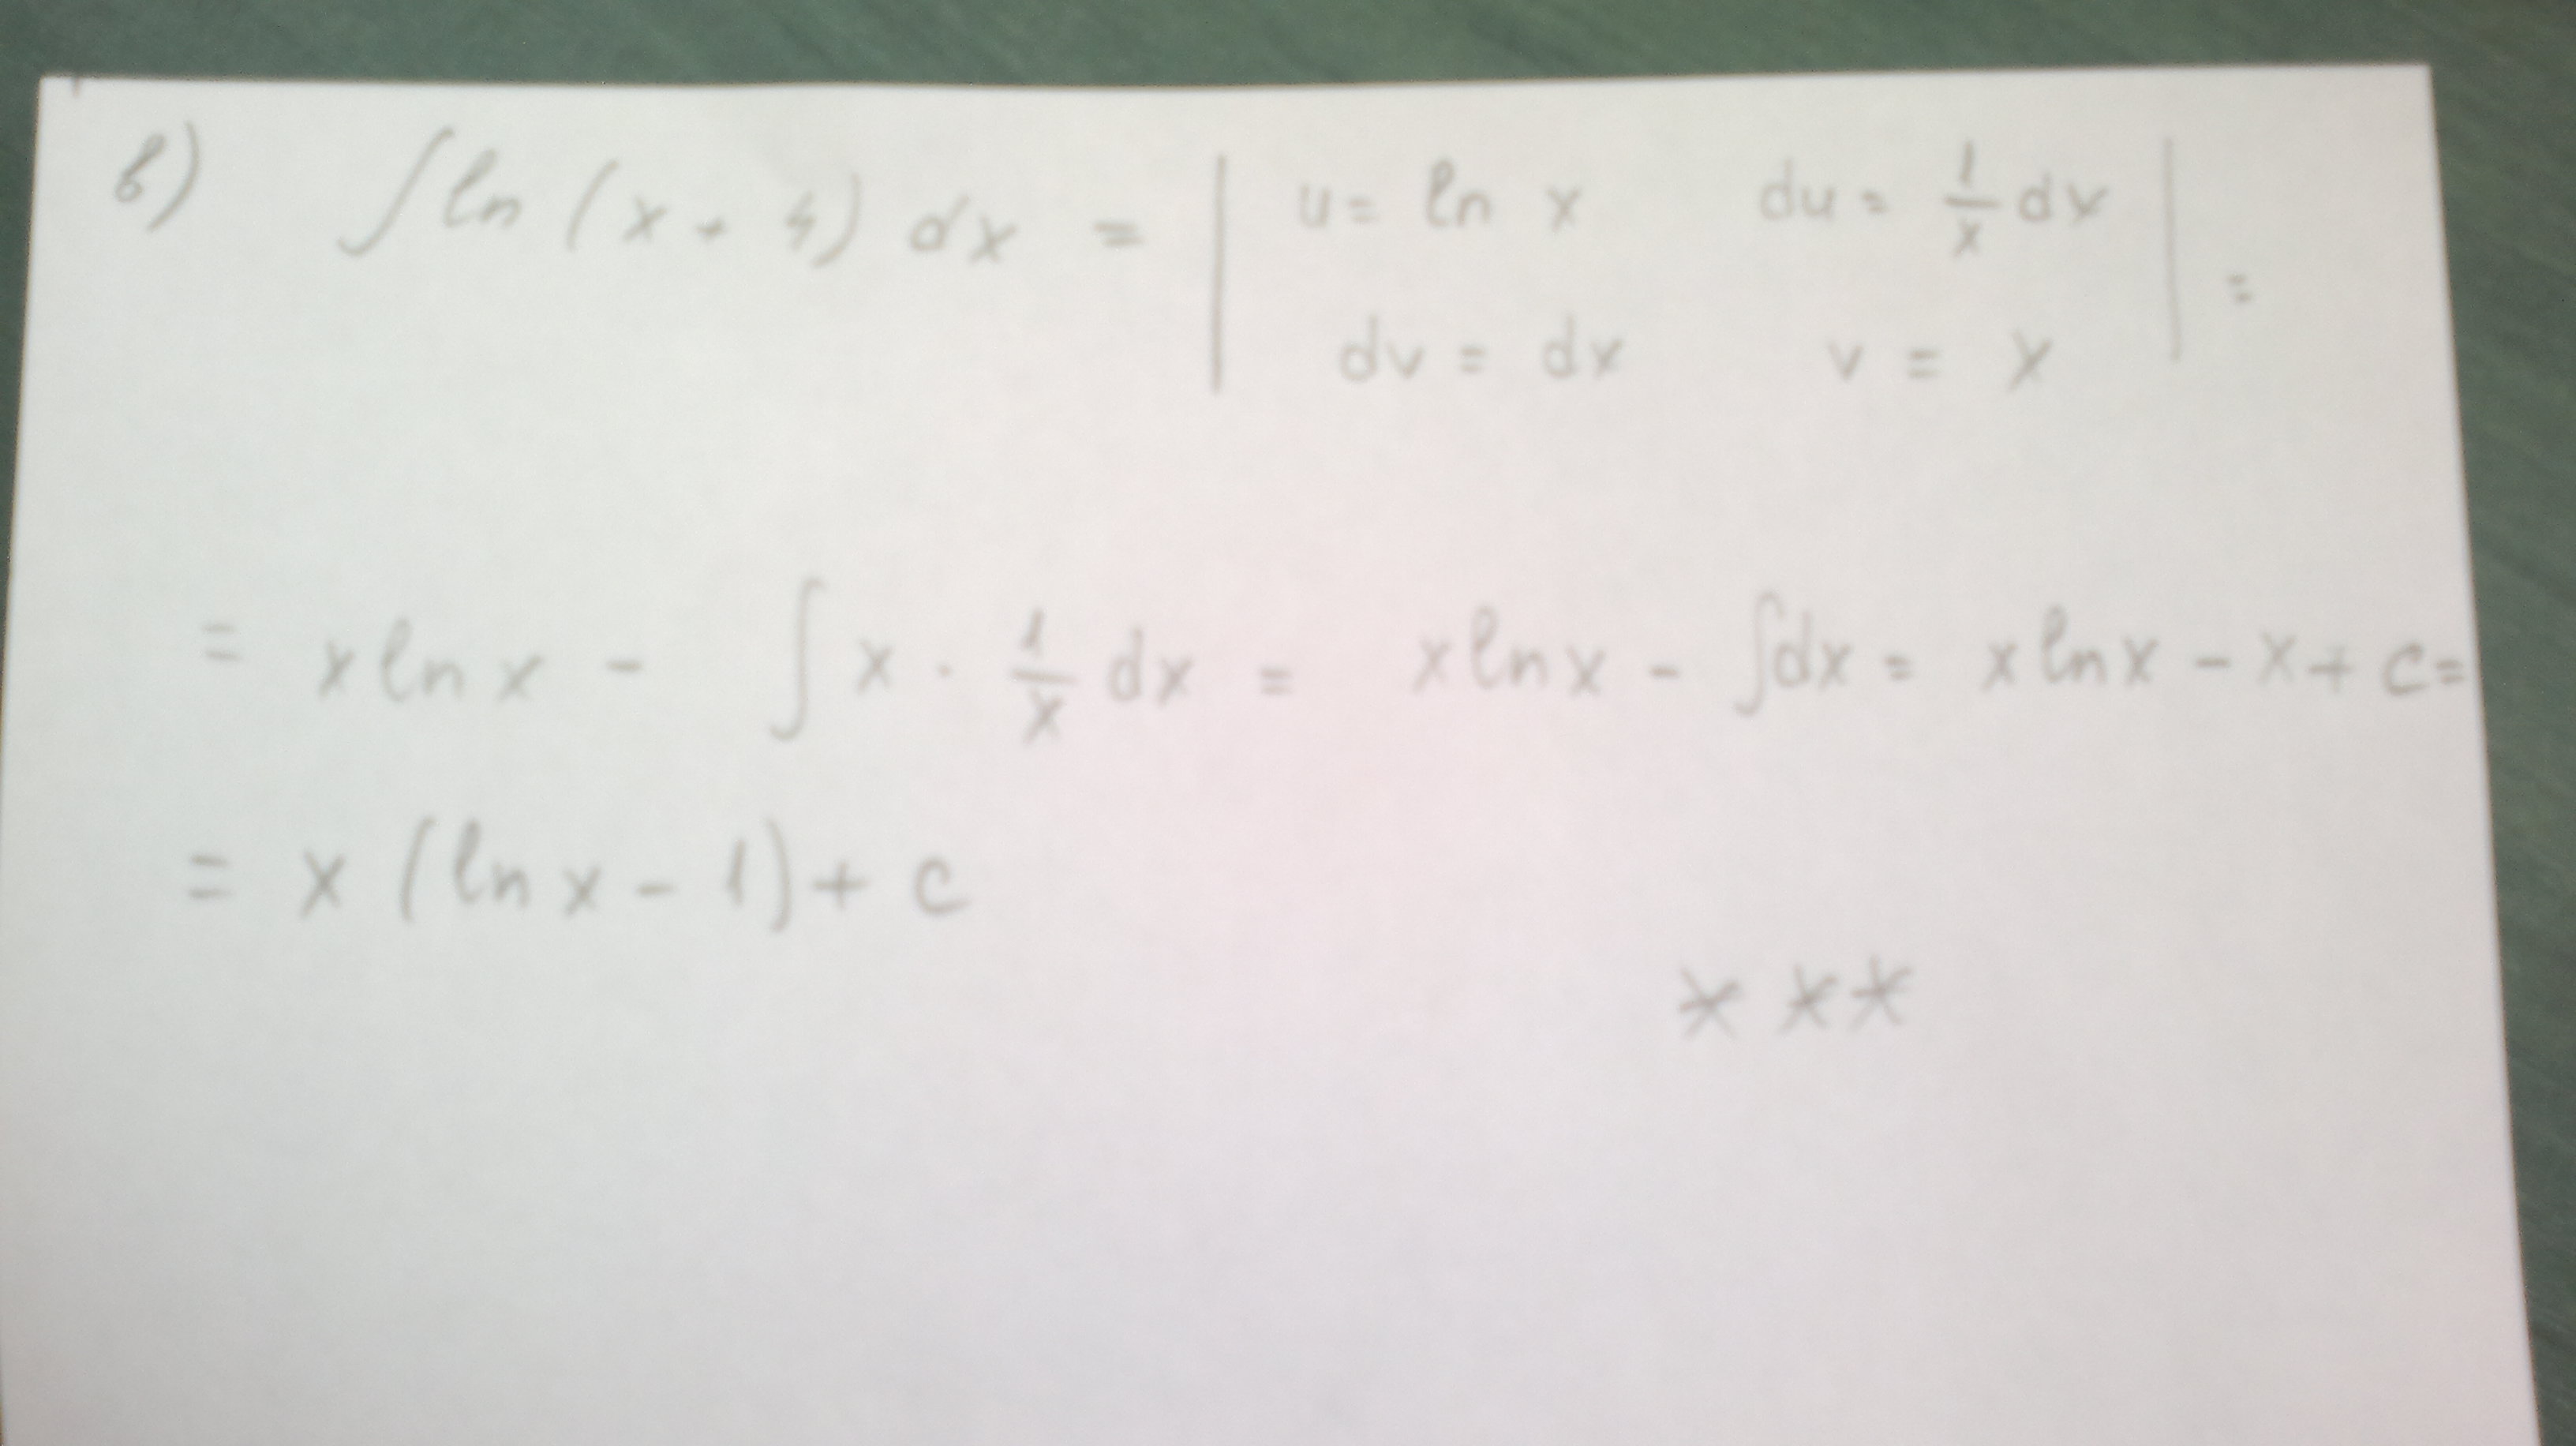 в) ∫ ln (x + 4) dx = | u = ln x du = 1/x dx | =
dv = dx v = x
= x ln x - ∫ x · 1/x dx = x ln x - ∫dx = x ln x - x + c =
= x (ln x - 1) + c
***